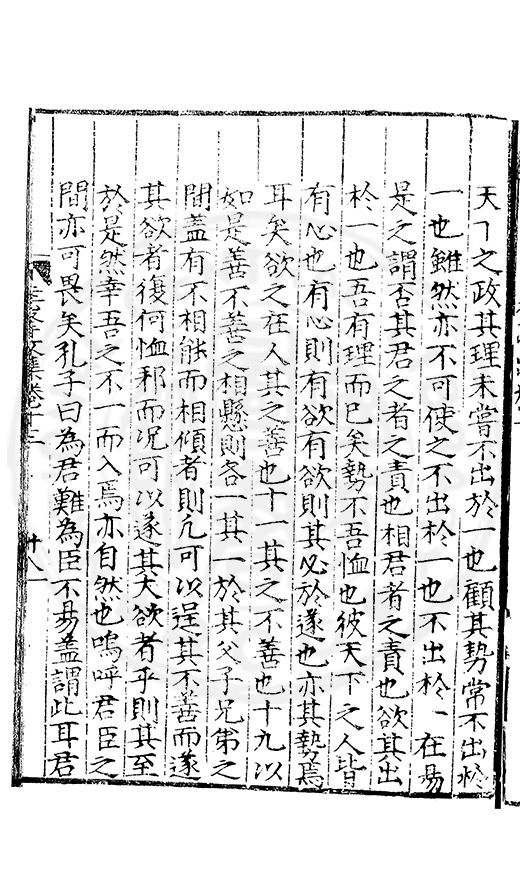 天下之政其理未嘗不出於一也顧其勢常不出於
一也雖然亦不可使之不出於一也不出於一在易
是之謂否其君之者之責也相君者之責也欲其出
於一也吾有理而已矣勢不吾恤也彼天下之人皆
有心也有心則有欲有欲則其必於遂也亦其勢焉
耳矣欲之在人其之善也十一其之不善也十九以
如是善不善之相懸則各一其一於其父子兄弟之
間盖有不相能而相傾者則凢可以逞其不善而遂
其欲者復何恤邪而况可以遂其大欲者乎則其至
於是然幸吾之不一而入焉亦自然也嗚呼君臣之
間亦可畏矣孔子曰為君難為臣不易盖謂此耳君
文集卷十三
廿八